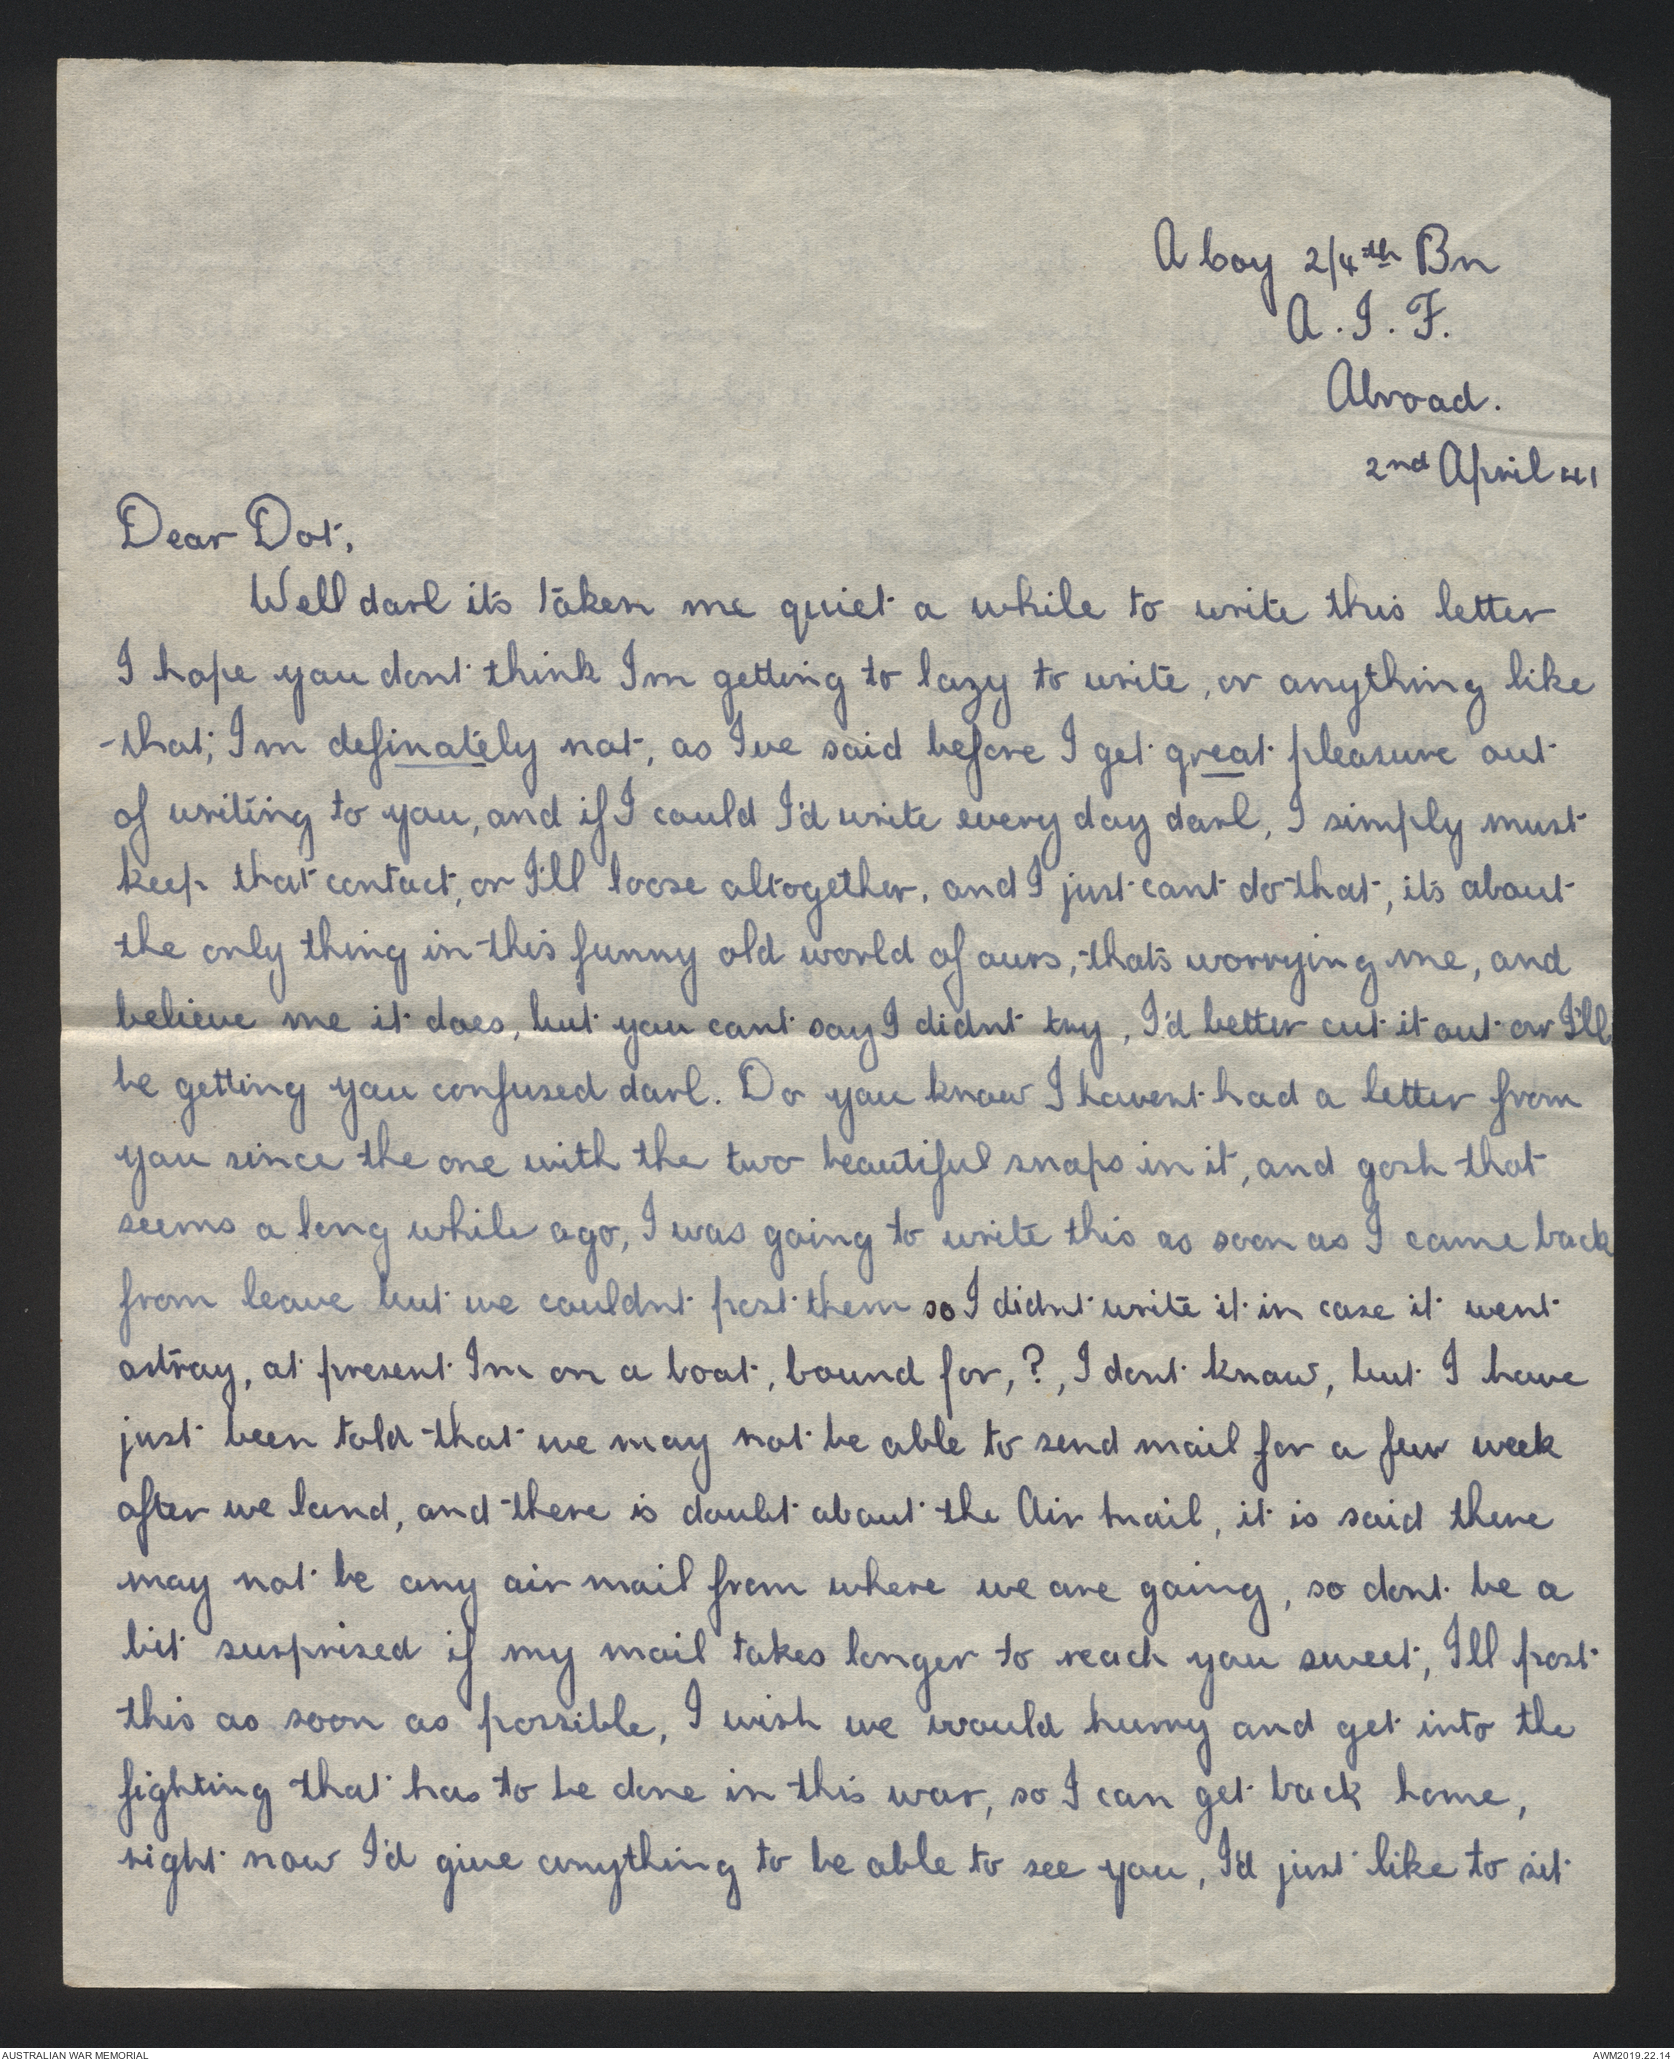 A Coy 2/4th Bn
A.I.F.
Abroad.
2nd April 41
Dear Dot,
Well darl it's taken me quiet a while to write this letter
I hope you dont think Im getting to lazy to write, or anything like
that; Im definately not, as I've said before I get great pleasure out
of writing to you, and if I could I'd write every day darl, I simply must
keep that contact, or I'll loose altogether, and I just cant do that, it's about
the only thing in this funny old world of ours, that's worrying me, and
believe me it does, but you cant say I didnt try, I'd better cut it out or I'll
be getting you confused darl. Do you know I havent had a letter from
you since the one with the two beautiful snaps in it, and gosh that
seems a long while ago, I was going to write this as soon as I came back
from leave but we couldnt post them so I didnt write it in case it went
astray, at present Im on a boat, bound for, ?, I dont know, but I have
just been told that we may not be able to send mail for a few week
after we land, and there is doubt about the Air mail, it is said there
may not be any air mail from where we are going, so dont be a
bit surprised if my mail takes longer to reach you sweet, I'll post
this as soon as possible, I wish we would hurry and get into the
fighting that has to be done in this war, so I can get back home,
right now I'd give anything to be able to see you, I'd just like to sit
AUSTRALIAN WAR MEMORIAL
AWM2019.22.14